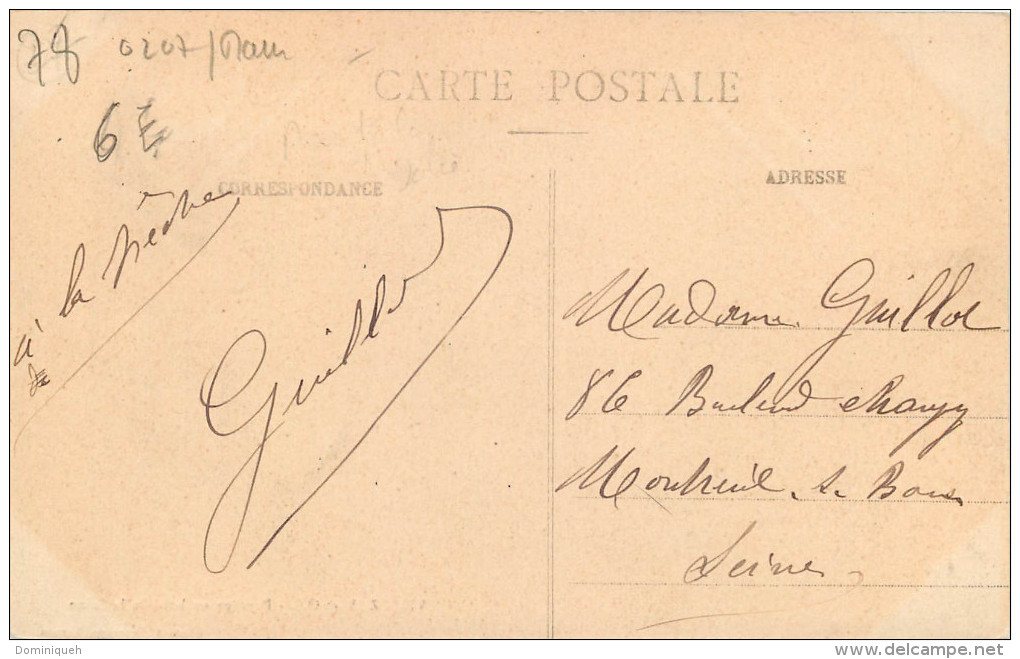 78
0207/Mam
6 E
CARTE POSTALE
CORRESPONDANCE
ADRESSE
à la pêche
Guillot
Madame Guillot
86 Boulevard Chanzy
Montreuil s/s Bois
Seine
Dominiqueh
delcampe.net